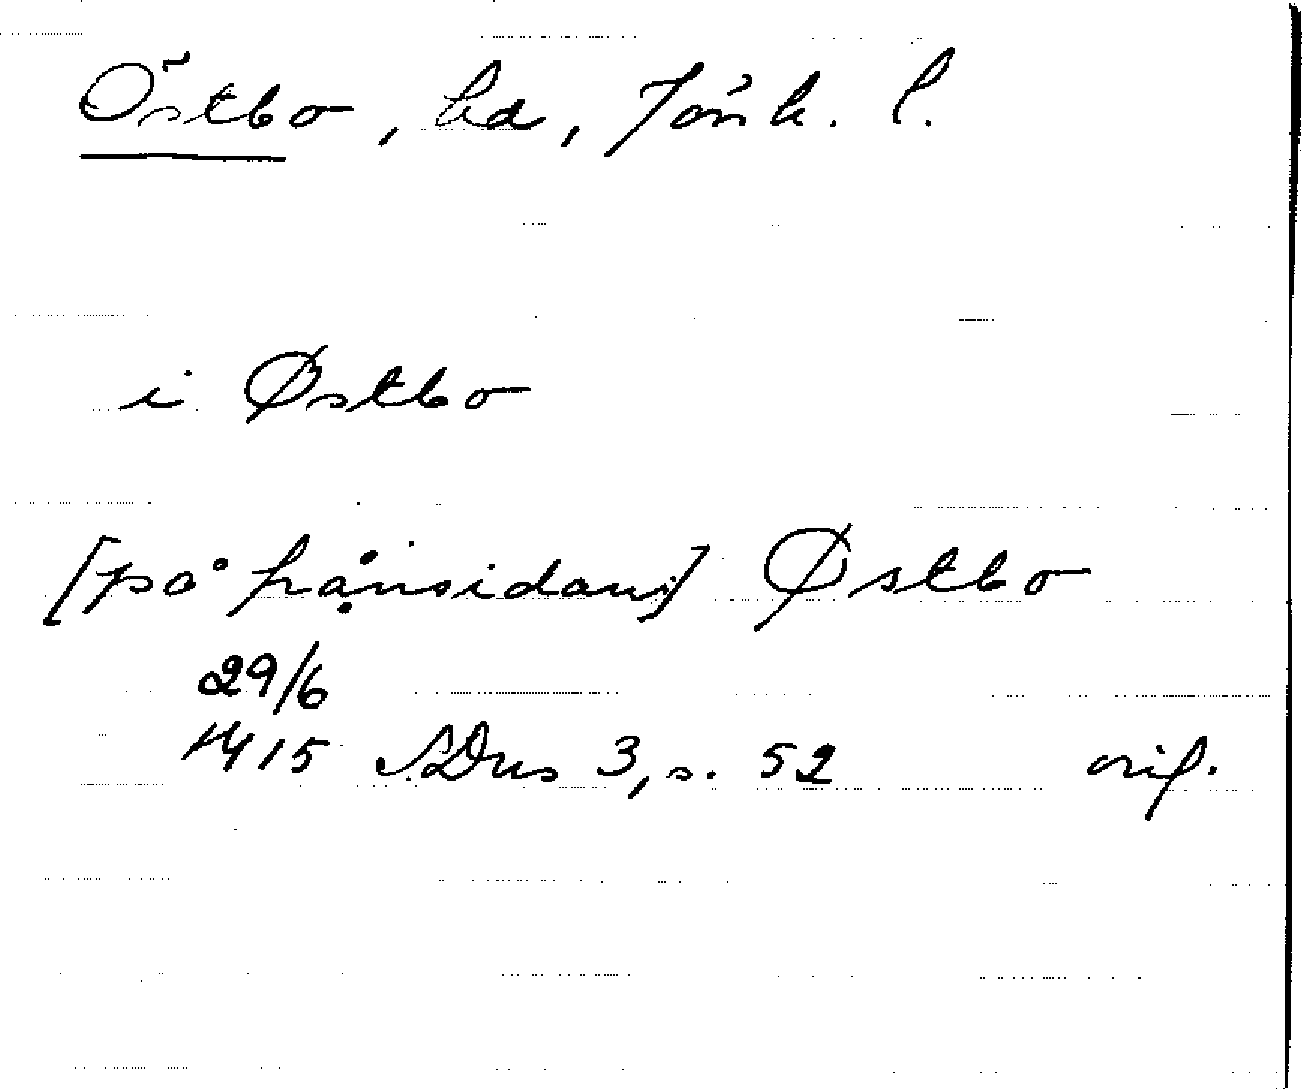 Östbo, hd, Jönk. l.
i Østbo
[på frånsidan] Østbo
29/6
1415 SDns 3, s. 52 orig.